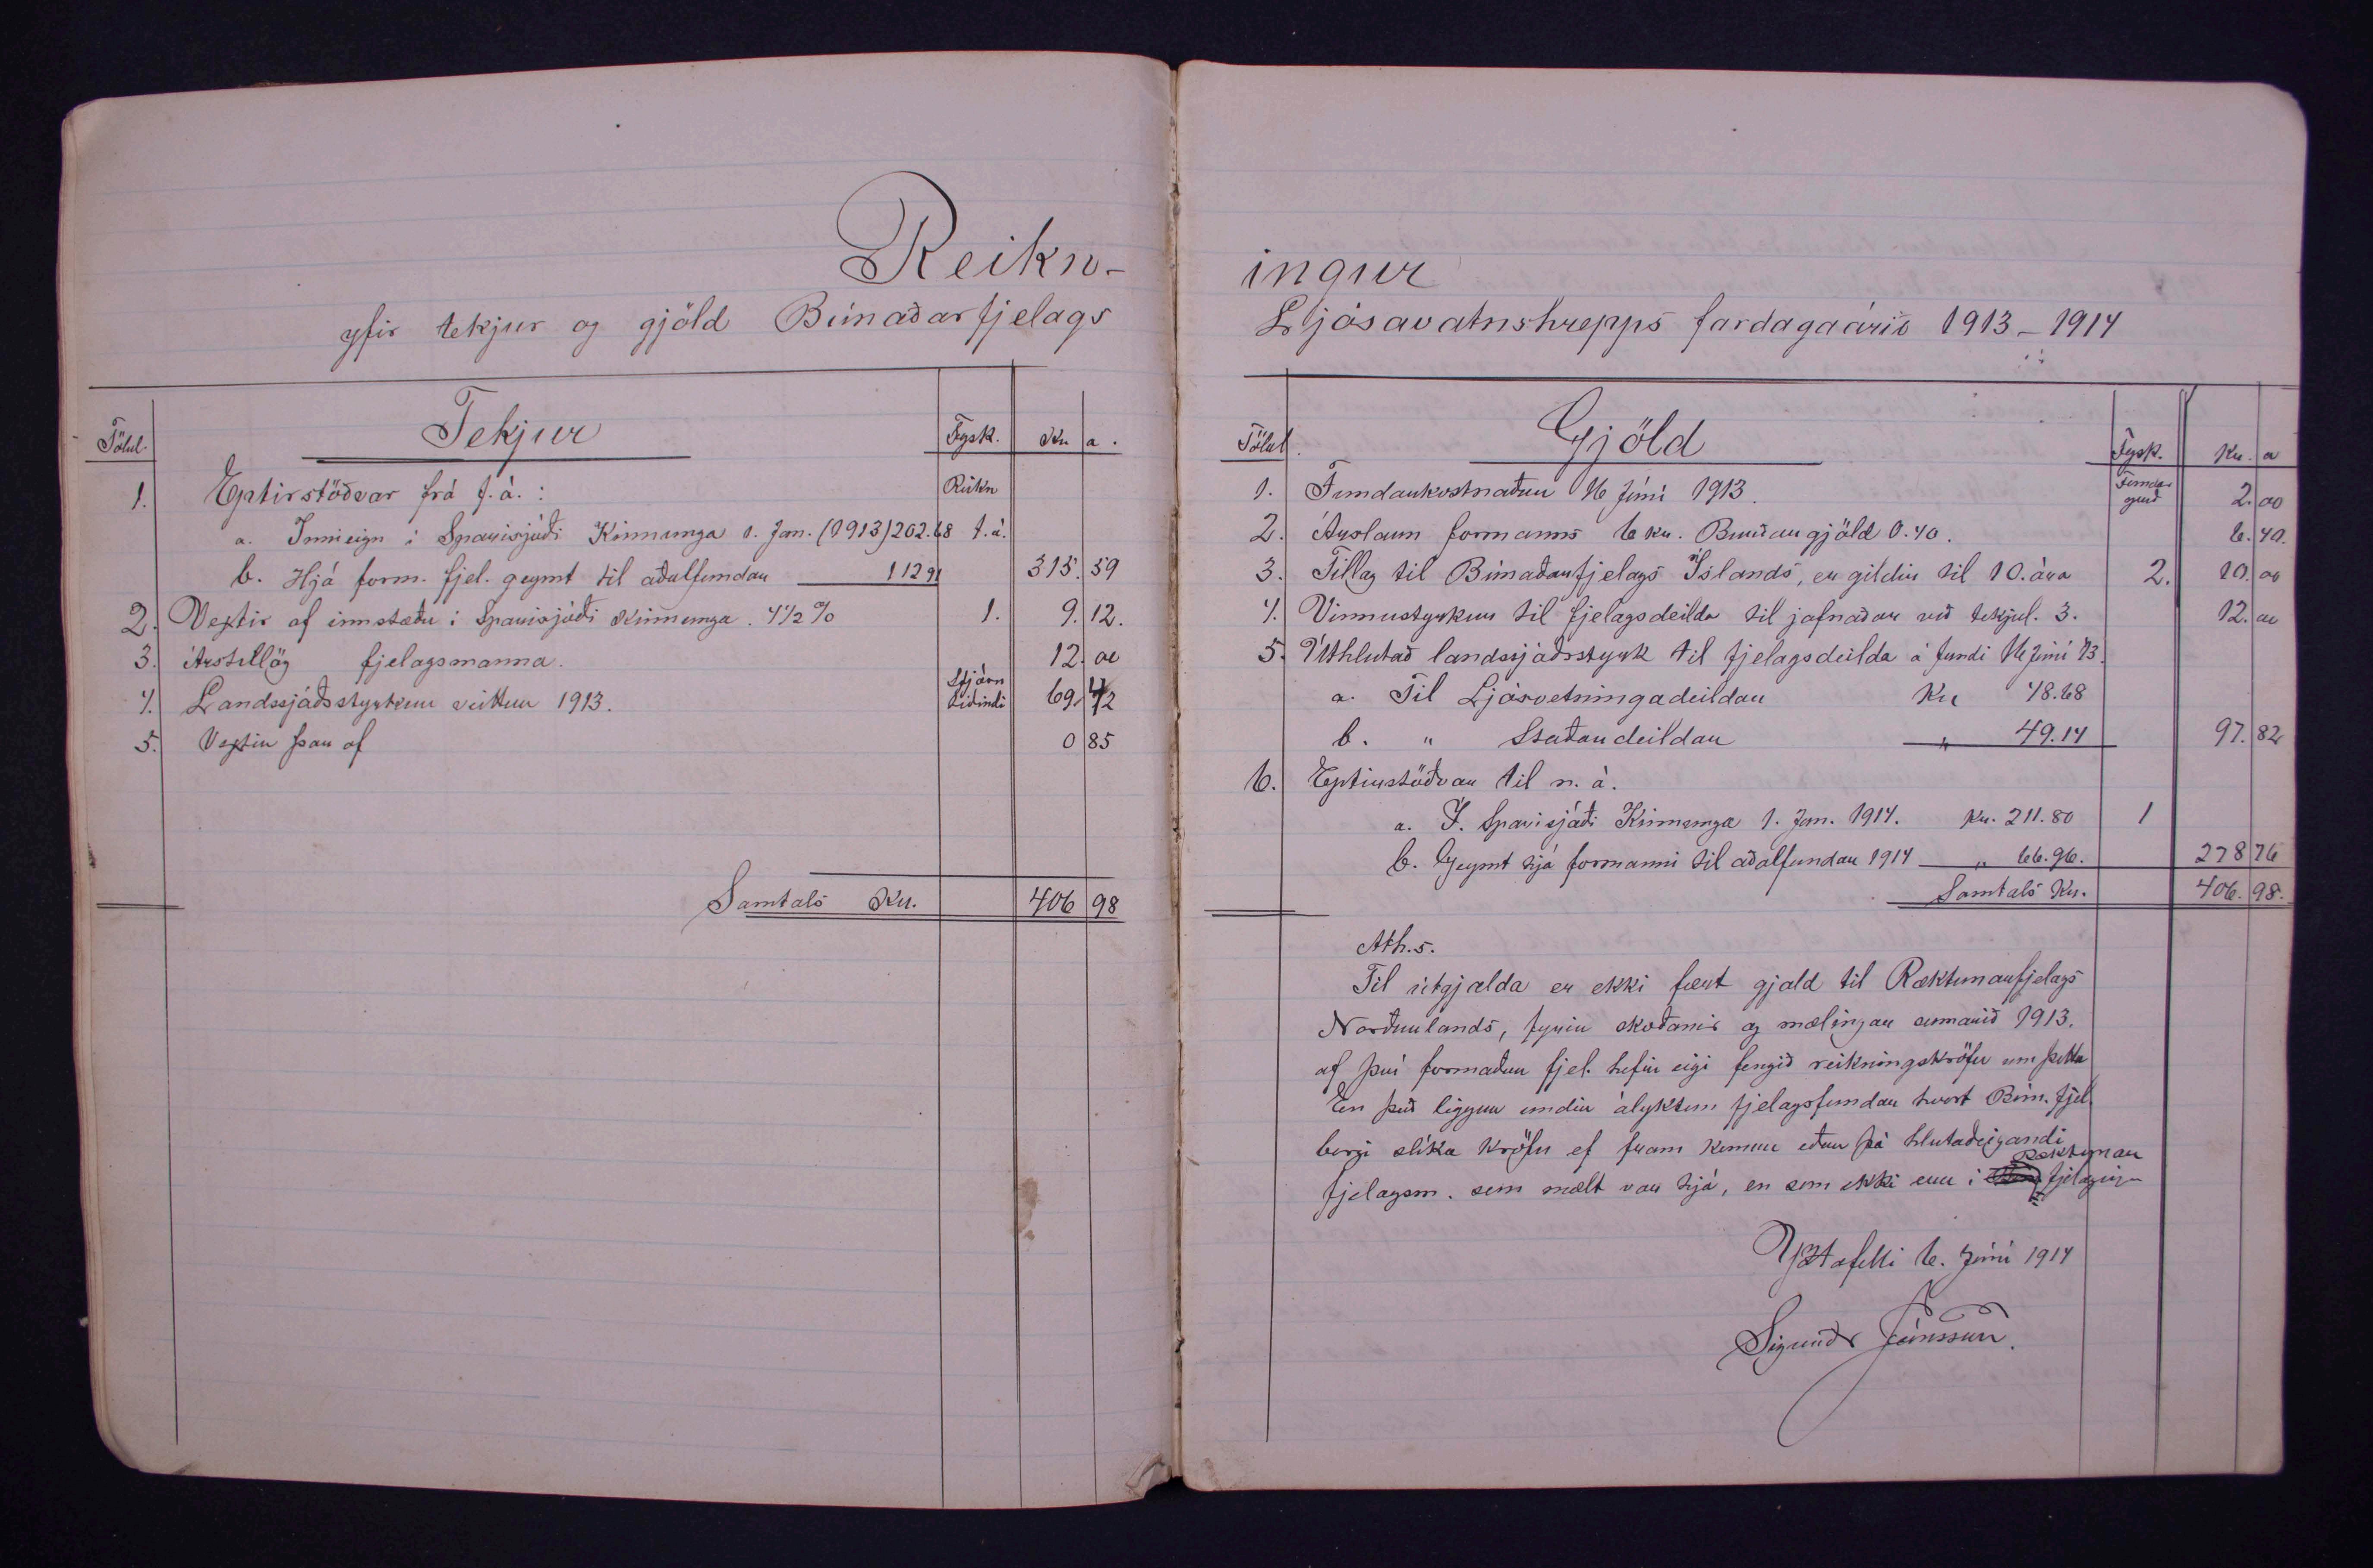 Reikn-
yfir tekjur og gjöld Búnaðarfjelags
Tölul. Tekjur Fysk. Kr a.
1. Eptirstöðvar frá f. á.: Reikn
a. Inneign í Sparisjóði Kinnunga 1. Jan. (1913) 202.68 f. á.
b. Hjá form. fjel. geymt til aðalfundar 112 91 315. 59
2. Vextir af innstæðu í Sparisjóði Kinnunga. 4 1/2 % 1. 9. 12.
3. Árstillög fjelagsmanna. 12. 00
4. Landssjóðsstyrkur veittur 1913. Stjórn tíðindi 69. 42
5. Vextir þar af 0 85
Samtals Kr. 406 98
ingur
Ljósavatnshrepps fardagaárið 1913-1914
Tölul. Gjöld Fysk. Kr. a
1. Fundarkostnaður 16 Júní 1913. Fundar gerð 2. 00
2. Árslaun formanns 6 kr. Burðargjöld 0.40. 6. 40.
3. Tillag til Búnaðarfjelags Íslands, er gildir til 10. ára 2. 10. 00
4. Vinnustyrkur til fjelagsdeilda til jafnaðar við tekjul. 3. 12. 00
5. Úthlutað landssjóðsstyrk til fjelagsdeilda á fundi 16 Júní 13.
a. Til Ljósvetningadeildar Kr 48.68
b. " Staðardeildar " 49.14 97. 82
6. Eptirstöðvar til n. á.
a. Í. Sparisjóði Kinnunga 1. Jan. 1914. Kr. 211.80 1
b. Geymt hjá formanni til aðalfundar 1914 " 66.96. 278 76
Samtals Kr. 406. 98.
Ath.s.
Til útgjalda er ekki fært gjald til Ræktunarfjelags
Norðurlands, fyrir skoðanir og mælingar sumarið 1913.
af því formaður fjel. hefir eigi fengið reikningskröfu um þetta
En það liggur undir ályktun fjelagsfundar hvort Bún. fjel.
borgi slíka kröfu ef fram kemur eður þá hlutaðeigandi
Ræktunar
fjelagsm. sem mælt var hjá, en sem ekki eru í fjelaginu
Yztafelli 6. Júní 1914
Sigurðr Jónsson.